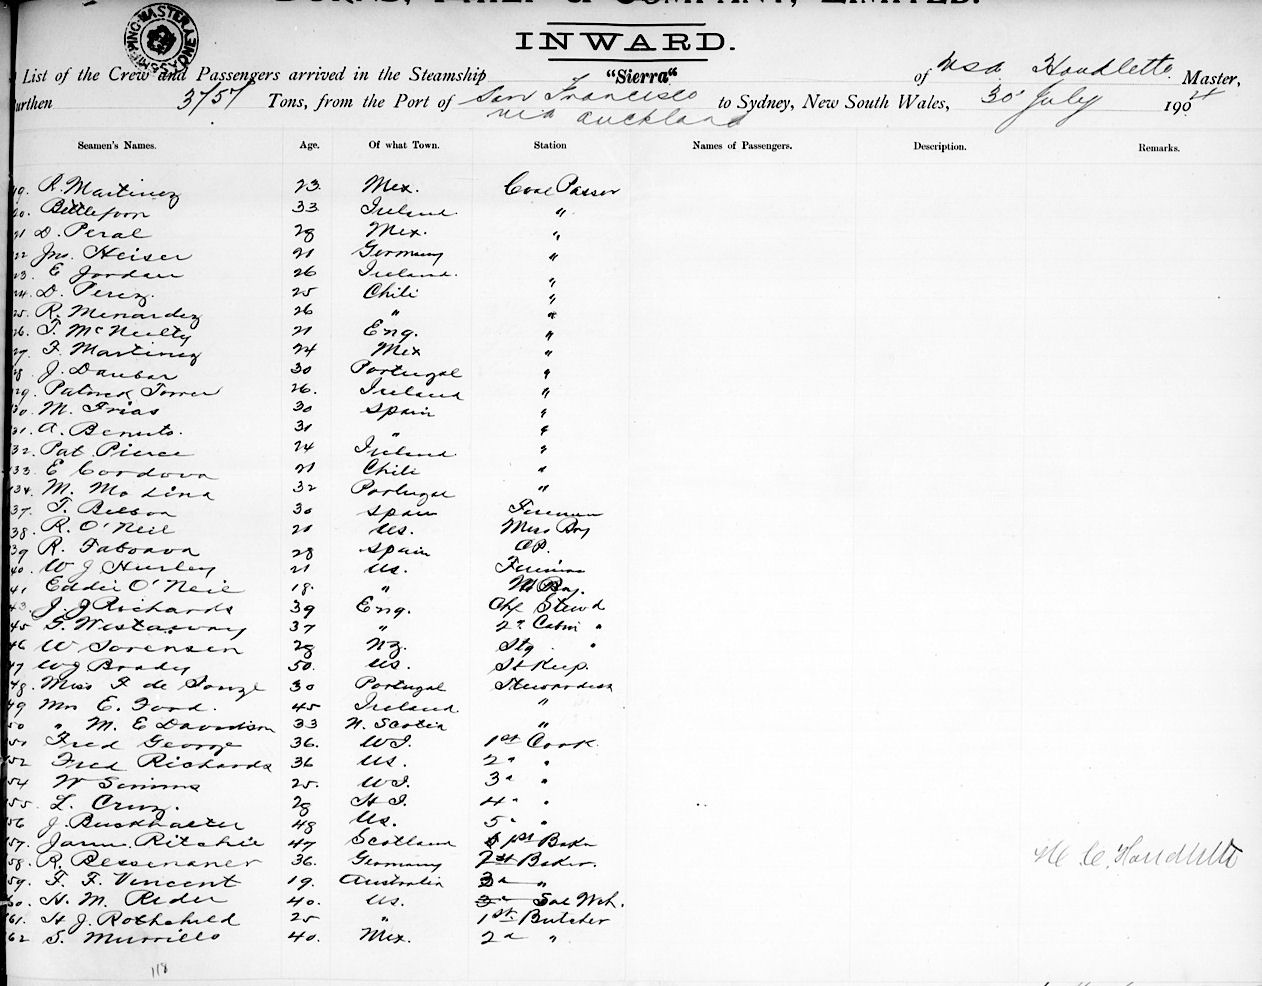 INWARD.
List of the Crew and Passengers arrived in the Steamship "Sierra" of Houdlette Master,
Burthen 3157 Tons, from the Port of San Francisco to Sydney, New South Wales, 30 July 190
via Auckland
Seamen's Names. Age. Of what Town. Station Names of Passengers. Description. Remarks.
R. Martinez 23. Mex. Coal Passer
33 Ireland "
D. Peral 28 Mex. "
Jno. Heiser 21 Germany "
23. E Jordan 26 Ireland. "
24. D. Perez. 25 Chili "
25. R. Menardez 26 " "
26. T. McNeilty 21 Eng. "
27. F. Martinez 24 Mex "
J. 30 Portugal "
29. Patrick 26. Ireland "
30. M. Frias 30 Spain "
31. A. 31 " "
32. Pat Pierce 24 Ireland "
33. E Cordova 21 Chili "
34. M. Modina 32 Portugal "
37. T. 30 Spain Fireman
38. R. O'Neil 21 US. Mess Boy
39 R. 28 Spain CP.
40. W J Hurley 21 US. Fireman
41 Eddie O'Neil 18. " M Boy.
43. J. J Richards 39 Eng. Chf Stewd
45 G. Westaway 37 " 2d Cabin "
46 W Sorensen 28 NZ. Stg. "
47 WJ Brady 50. US. StKeep.
48. Miss F de 30 Portugal Stewardess
49 Mrs E. Ford. 45 Ireland "
50 " M. E Davidson 33 N. Scotia "
51 Fred George 36. WI. 1st Cook
52 Fred Richards 36 US. 2d "
54 W Simms 25. WI. 3d "
55. L. Cruz. 28 HI. 4" "
56 J. 48 US. 5" "
57. Ritchie 47 Scotland 1st Baker
58. R. Bessenaner 36. Germany 2d Baker.
59. F. F. Vincent 19. Australia 3d "
60. H. M. Rider 40. US. 3d Wch.
61. H J. Rothchild 25 " 1st Butcher
62 S. Murrillo 40. Mex. 2d "
H C. Houdlette
118